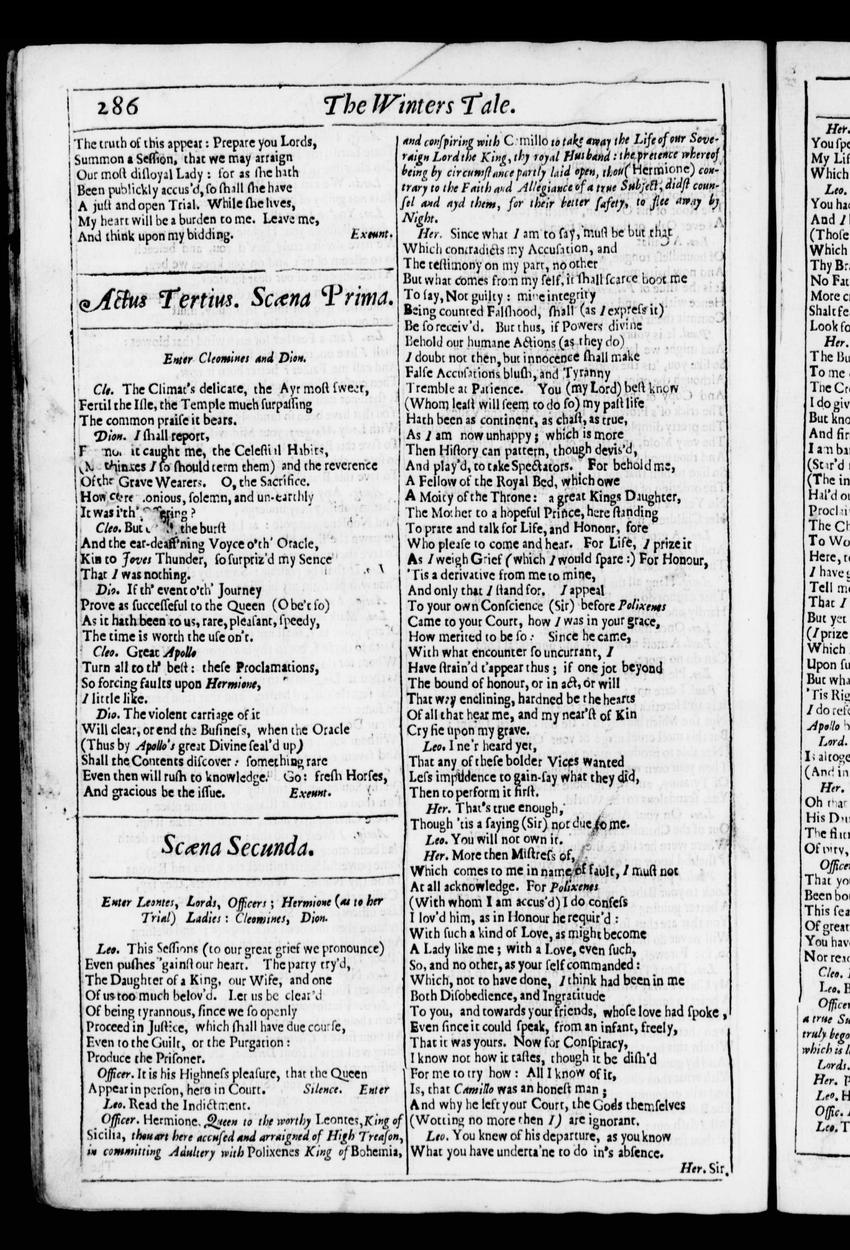 286
The Winters Tale.
The truth of this appear: Prepare you Lords,
Summon a Seſſion, that we may arraign
Our moſt diſloyal Lady: for as ſhe hath
Been publickly accus'd, ſo ſhall ſhe have
A juſt and open Trial. While ſhe lives,
My heart will be a burden to me. Leave me,
And think upon my bidding. Exeunt.
Actus Tertius. Scæna Prima.
Enter Cleomines and Dion.
Cle. The Climat's delicate, the Ayr moſt ſweet,
Fertil the Iſle, the Temple much ſurpaſſing
The common praiſe it bears.
Dion. I ſhall report,
it caught me, the Celeſtial Habits,
I ſo ſhould term them) and the reverence
Of the Grave Wearers. O, the Sacrifice.
How onious, ſolemn, and un-earthly
It was i'th'
Cleo. But the burſt
And the ear-deaff'ning Voyce o'th' Oracle,
Kin to Joves Thunder, ſo ſurpriz'd my Sence
That I was nothing.
Dio. If th' event o'th' Journey
Prove as ſucceſſeful to the Queen (O be't ſo)
As it hath been to us, rare, pleaſant, ſpeedy,
The time is worth the uſe on't.
Cleo. Great Apollo
Turn all to th' beſt: theſe Proclamations,
So forcing faults upon Hermione,
I little like.
Dio. The violent carriage of it
Will clear, or end the Buſineſs, when the Oracle
(Thus by Apollo's great Divine ſeal'd up)
Shall the Contents diſcover: ſomething rare
Even then will ruſh to knowledge. Go: freſh Horſes,
And gracious be the iſſue. Exeunt.
Scæna Secunda.
Enter Leontes, Lords, Officers; Hermione (as to her
Trial) Ladies: Cleomines, Dion.
Leo. This Seſſions (to our great grief we pronounce)
Even puſhes 'gainſt our heart. The party try'd,
The Daughter of a King, our Wife, and one
Of us too much belov'd. Let us be clear'd
Of being tyrannous, ſince we ſo openly
Proceed in Juſtice, which ſhall have due courſe,
Even to the Guilt, or the Purgation:
Produce the Priſoner.
Officer. It is his Highneſs pleaſure, that the Queen
Appear in perſon, here in Court. Silence. Enter
Leo. Read the Indictment.
Officer. Hermione, Queen to the worthy Leontes, King of
Sicilia, thou art here accuſed and arraigned of High Treaſon,
in committing Adultery with Polixenes King of Bohemia,
and conſpiring with Camillo to take away the Life of our Sove-
raign Lord the King, thy royal Husband: the pretence whereof
being by circumſtance partly laid open, thou (Hermione) con-
trary to the Faith and Allegiance of a true Subject, didſt coun-
ſel and ayd them, for their better ſafety, to flee away by
Night.
Her. Since what I am to ſay, muſt be but that
Which contradicts my Accuſation, and
The teſtimony on my part, no other
But what comes from my ſelf, it ſhall ſcarce boot me
To ſay, Not guilty: mine integrity
Being counted Falſhood, ſhall (as I expreſs it)
Be ſo receiv'd. But thus, if Powers divine
Behold our humane Actions (as they do)
I doubt not then, but innocence ſhall make
Falſe Accuſations bluſh, and Tyranny
Tremble at Patience. You (my Lord) beſt know
(Whom leaſt will ſeem to do ſo) my paſt life
Hath been as continent, as chaſt, as true,
As I am now unhappy; which is more
Then Hiſtory can pattern, though devis'd,
And play'd, to take Spectators. For behold me,
A Fellow of the Royal Bed, which owe
A Moity of the Throne: a great Kings Daughter,
The Mother to a hopeful Prince, here ſtanding
To prate and talk for Life, and Honour, fore
Who pleaſe to come and hear. For Life, I prize it
As I weigh Grief (which I would ſpare:) For Honour,
'Tis a derivative from me to mine,
And only that I ſtand for. I appeal
To your own Conſcience (Sir) before Polixenes
Came to your Court, how I was in your grace,
How merited to be ſo: Since he came,
With what encounter ſo uncurrant, I
Have ſtrain'd t'appear thus; if one jot beyond
The bound of honour, or in act, or will
That way enclining, hardned be the hearts
Of all that hear me, and my near'ſt of Kin
Cry fie upon my grave.
Leo. I ne'r heard yet,
That any of theſe bolder Vices wanted
Leſs impudence to gain-ſay what they did,
Then to perform it firſt.
Her. That's true enough,
Though 'tis a ſaying (Sir) not due to me.
Leo. You will not own it.
Her. More then Miſtreſs of,
Which comes to me in name of fault, I muſt not
At all acknowledge. For Polixenes
(With whom I am accus'd) I do confeſs
I lov'd him, as in Honour he requir'd:
With ſuch a kind of Love, as might become
A Lady like me; with a Love, even ſuch,
So, and no other, as your ſelf commanded:
Which, not to have done, I think had been in me
Both Diſobedience, and Ingratitude
To you, and towards your friends, whoſe love had ſpoke,
Even ſince it could ſpeak, from an infant, freely,
That it was yours. Now for Conſpiracy,
I know not how it taſtes, though it be diſh'd
For me to try how: All I know of it,
Is, that Camillo was an honeſt man;
And why he left your Court, the Gods themſelves
(Wotting no more then I) are ignorant.
Leo. You knew of his departure, as you know
What you have underta'ne to do in's abſence.
Her. Sir,